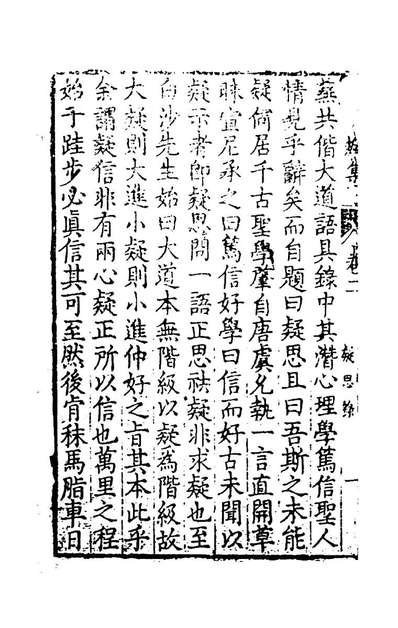 燕共偕大道語具錄中其潛心理學篤信聖人
情見乎辭矣而自題曰疑思且曰吾斯之未能
疑何居千古聖學肇自唐虞允執一言直開草
昧宣尼承之曰篤信好學曰信而好古未聞以
疑示者即疑思問一語正思祛疑非求疑也至
白沙先生始曰大道本無階級以疑為階級故
大疑則大進小疑則小進仲好之旨其本此乎
余謂疑信非有兩心疑正所以信也萬里之程
始于跬步必眞信其可至然後肯秣馬脂車日
集
卷二
疑思錄
一